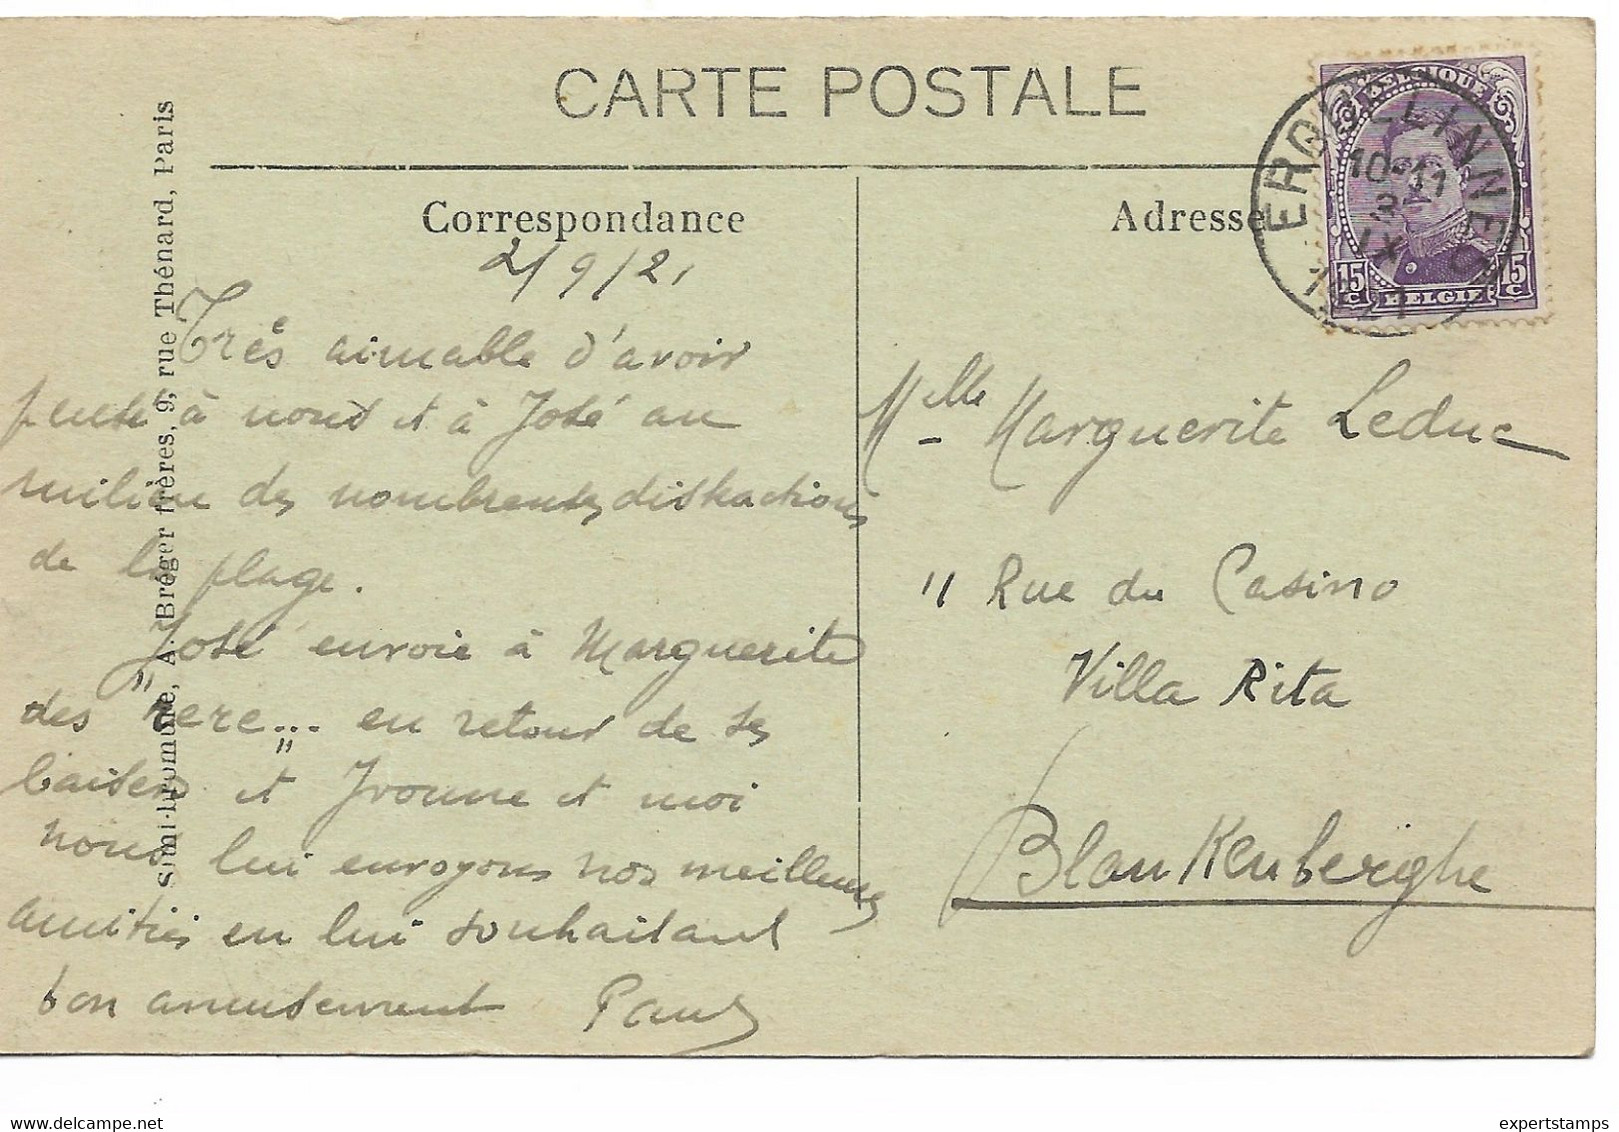 CARTE POSTALE
Correspondance
Adresse
Simi-bromure, A. Bréger frères, 9, rue Thénard, Paris
BELGIQUE
15 c
15 c
BELGIE
ERQUELINNES
10-11
3
IX
2/9/21
Très aimable d'avoir
pensé à nous et à José au
milieu des nombreuses distractions
de la plage.
José envoie à Marguerite
des "rere..." en retour de ses
baisers et Yvonne et moi
nous lui envoyons nos meilleures
amitiés en lui souhaitant
bon amusement Paul
Mlle Marguerite Leduc
11 Rue du Casino
Villa Rita
Blankenberghe
hippostcard.com
expertstamps